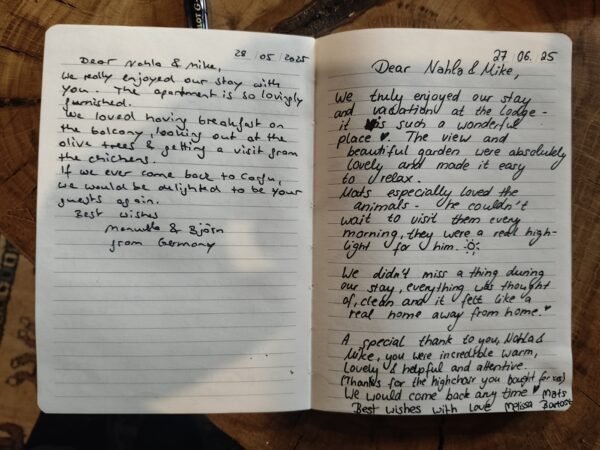 28 / 05 / 2025
Dear Nahla & Mike,
We really enjoyed our stay with
you. The apartment is so lovingly
furnished.
We loved having breakfast on
the balcony, looking out at the
olive trees & getting a visit from
the chickens.
If we ever come back to Corfu,
we would be delighted to be your
guests again.
Best wishes
Manuela & Björn
from Germany
27 / 06. 25
Dear Nahla & Mike,
We truly enjoyed our stay
and vacation at the lodge -
it is such a wonderful
place ♥. The view and
beautiful garden were absolutely
lovely and made it easy
to relax.
Mats especially loved the
animals - he couldn't
wait to visit them every
morning, they were a real high-
light for him.
We didn't miss a thing during
our stay, everything was thought
of, clean and it felt like a
real home away from home. ♥
A special thank to you, Nahla &
Mike, you were incredible warm,
lovely & helpful and attentive.
(Thanks for the highchair you bought for us)
We would come back any time ♥ Mats
Best wishes with love Melissa
PILOT G-